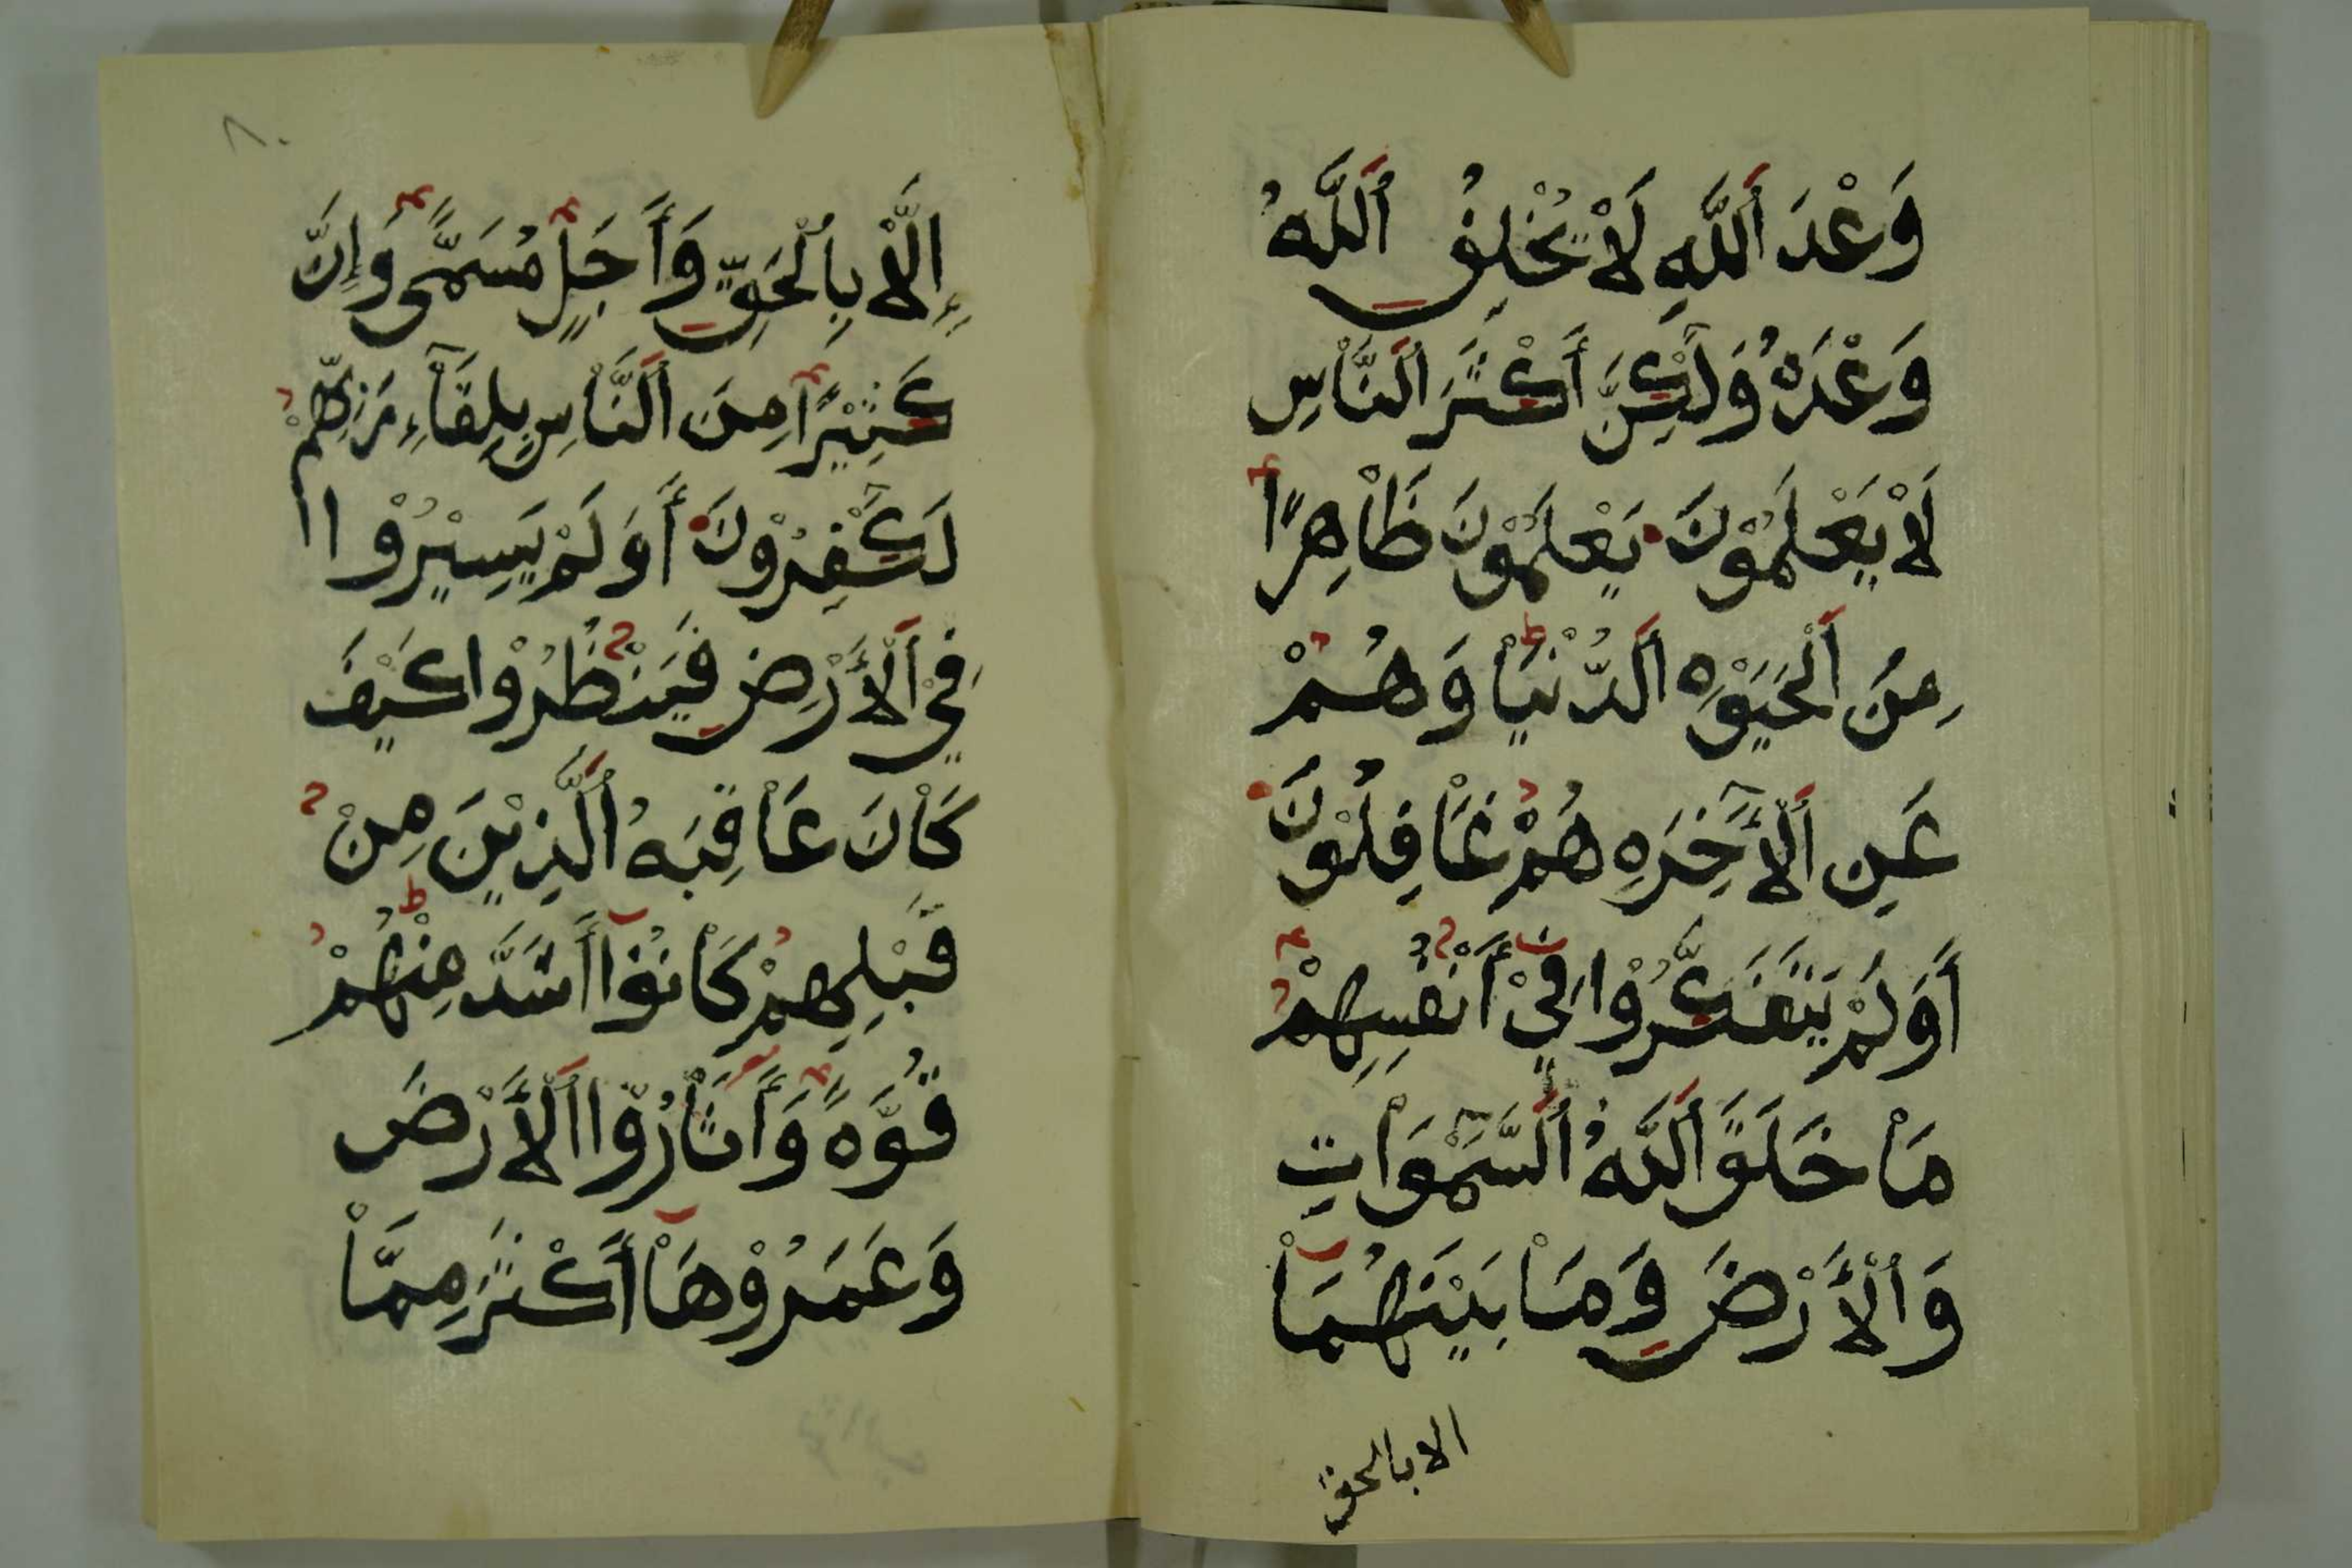 وَعْدَ اَللَّهِ لَاْ يُخْلِفُ اَللَّهُ
وَعْدَهُ وَلَٰكِنَّ أَكْثَرَ اَلنَّاْسِ
لَاْ يَعْلَمُوْنَ يَعْلَمُوْنَ ظَاْهِرًا
مِنَ اَلْحَيَوٰةِ اَلدُّنْيَاْ وَهُمْ
عَنِ اَلْأٓخِرَةِ هُمْ غَاْفِلُوْنَ
أَوَلَمْ يَتَفَكَّرُوْا فِيْ أَنْفُسِهِمْ
مَاْ خَلَقَ اَللَّهُ اَلسَّمَٰوَاْتِ
وَاَلْأَرْضَ وَمَاْ بَيْنَهُمَاْ
الا بالحق
٨٠
إِلَّاْ بِاَلْحَقِّ وَأَجَلٍ مُسَمًّى وَإِنَّ
كَثِيْرًا مِنَ اَلنَّاْسِ بِلِقَآءِ رَبِّهِمْ
لَكَٰفِرُوْنَ أَوَلَمْ يَسِيْرُوْا
فِيْ اَلْأَرْضِ فَيَنْظُرُوْا كَيْفَ
كَاْنَ عَاْقِبَةُ اَلَّذِيْنَ مِنْ
قَبْلِهِمْ كَاْنُوْا أَشَدَّ مِنْهُمْ
قُوَّةً وَأَثَاْرُوْا اَلْأَرْضَ
وَعَمَرُوْهَاْ أَكْثَرَ مِمَّاْ